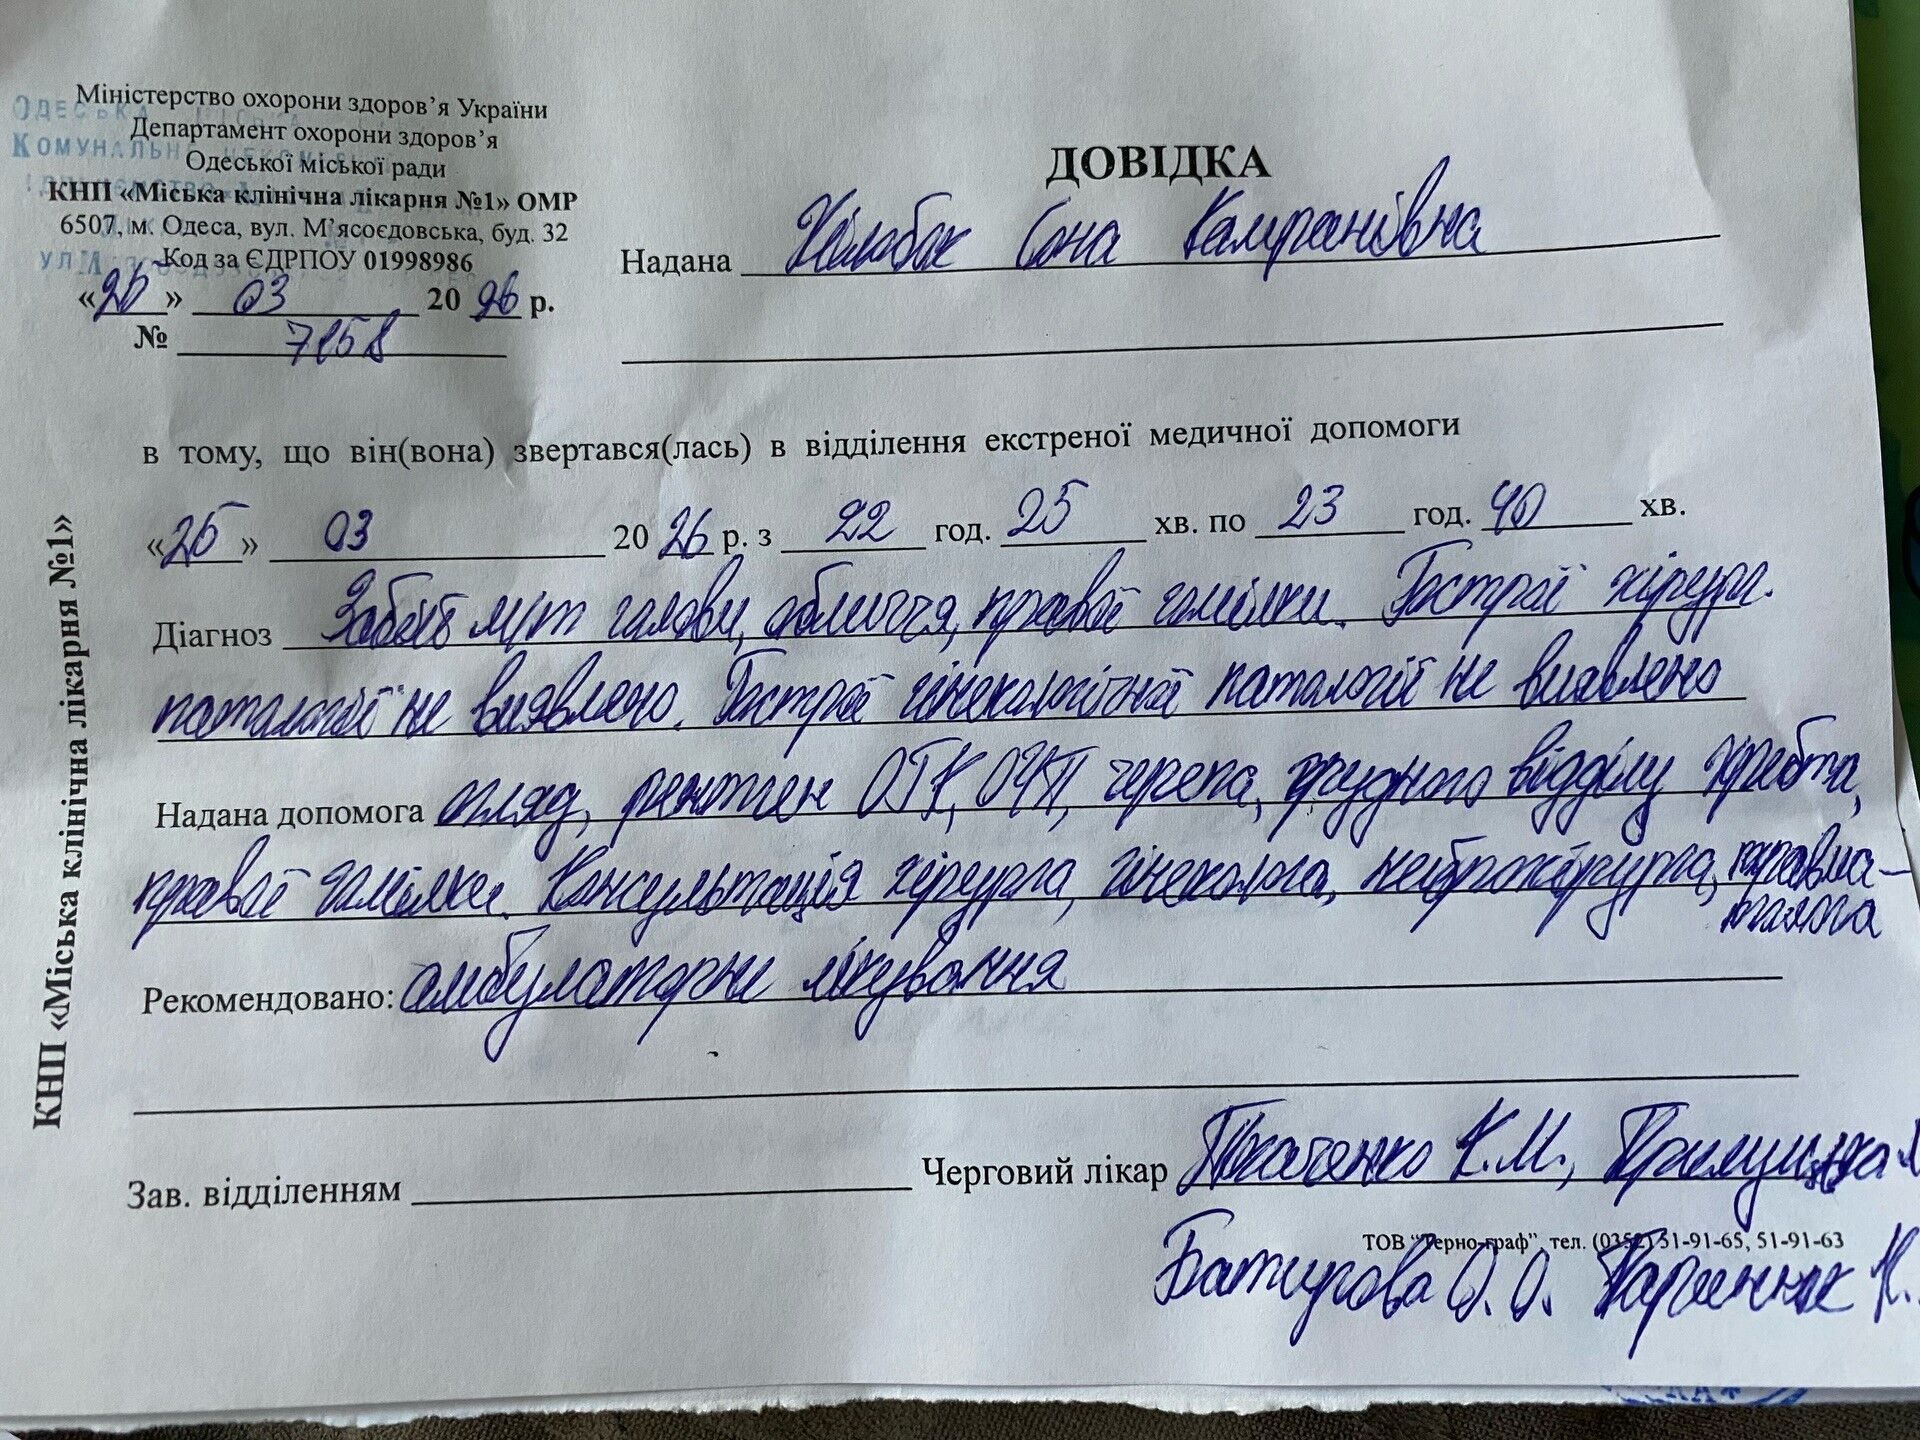 Міністерство охорони здоров’я України
Департамент охорони здоров’я
Одеської міської ради
КНП «Міська клінічна лікарня №1» ОМР
6507, м. Одеса, вул. М’ясоєдовська, буд. 32
Код за ЄДРПОУ 01998986
«26» 03 2026 р.
№ 7258
ДОВІДКА
Надана Сона Кампанівна
в тому, що він(вона) звертався(лась) в відділення екстреної медичної допомоги
«26» 03 2026 р. з 22 год. 25 хв. по 23 год. 40 хв.
Діагноз Забій м/т голови, обличчя, правої гомілки. Гострої хірург.
патології не виявлено. Гострої гінекологічної патології не виявлено
Надана допомога огляд, рентген ОГК, ОЧП, черепа, грудного відділу хребта,
правої гомілки. Консультація хірурга, гінеколога, нейрохірурга, травма-
толога
Рекомендовано: амбулаторне лікування
Зав. відділенням Черговий лікар Ткаченко К.М.,
ТОВ “Терно-граф”, тел. (0352) 51-91-65, 51-91-63
О. О.
КНП «Міська клінічна лікарня №1»